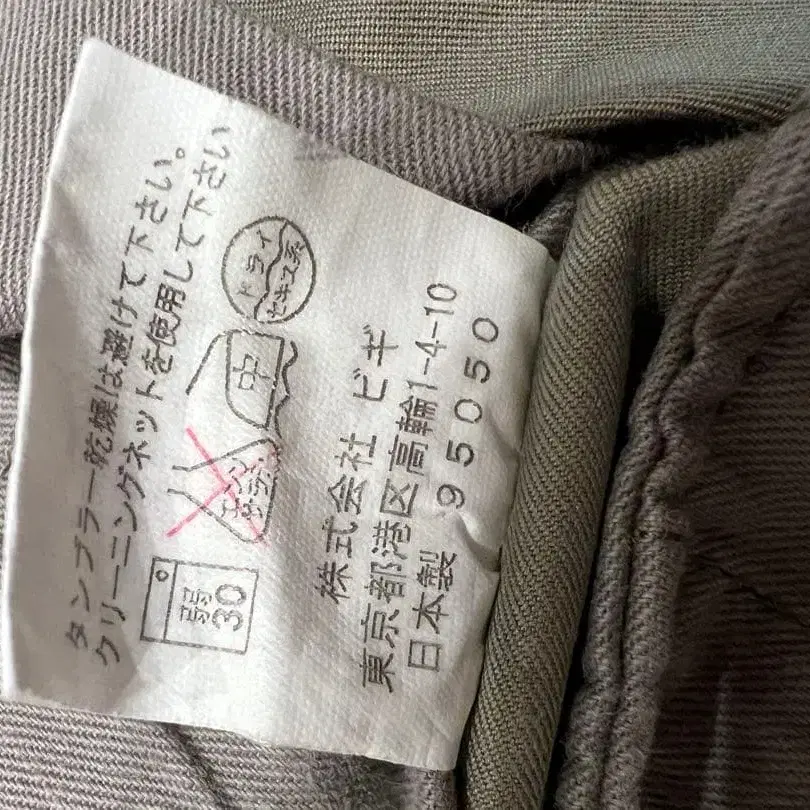 タンブラー乾燥は避けて下さい。
クリーニングネットを使用して下さい
弱
30
エンソ
サラシ
中
ドライ
セキユ系
株式会社 ビギ
東京都港区高輪1-4-10
日本製 95050